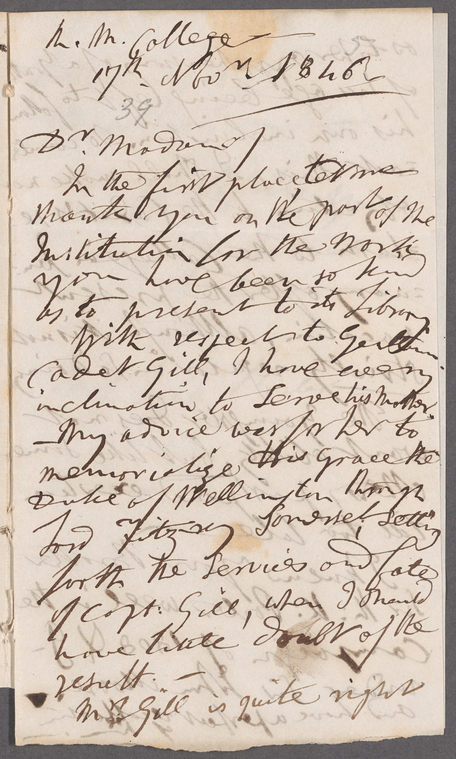 R. M. College
17th Novr 1846
39
Dr Madam/
In the first place let me
thank you on the part of the
Institution for the Work
you have been so kind
as to present to its Library
With respect to Gentlm
Cadet Gill, I have every
inclination to Serve his Mother.
My advice was for her to
memorialize His Grace the
Duke of Wellington through
Lord Fitzroy Somerset, Setting
forth the Services and fate
of Capt. Gill, when I should
have little doubt of the
result. —
Mrs Gill is quite right